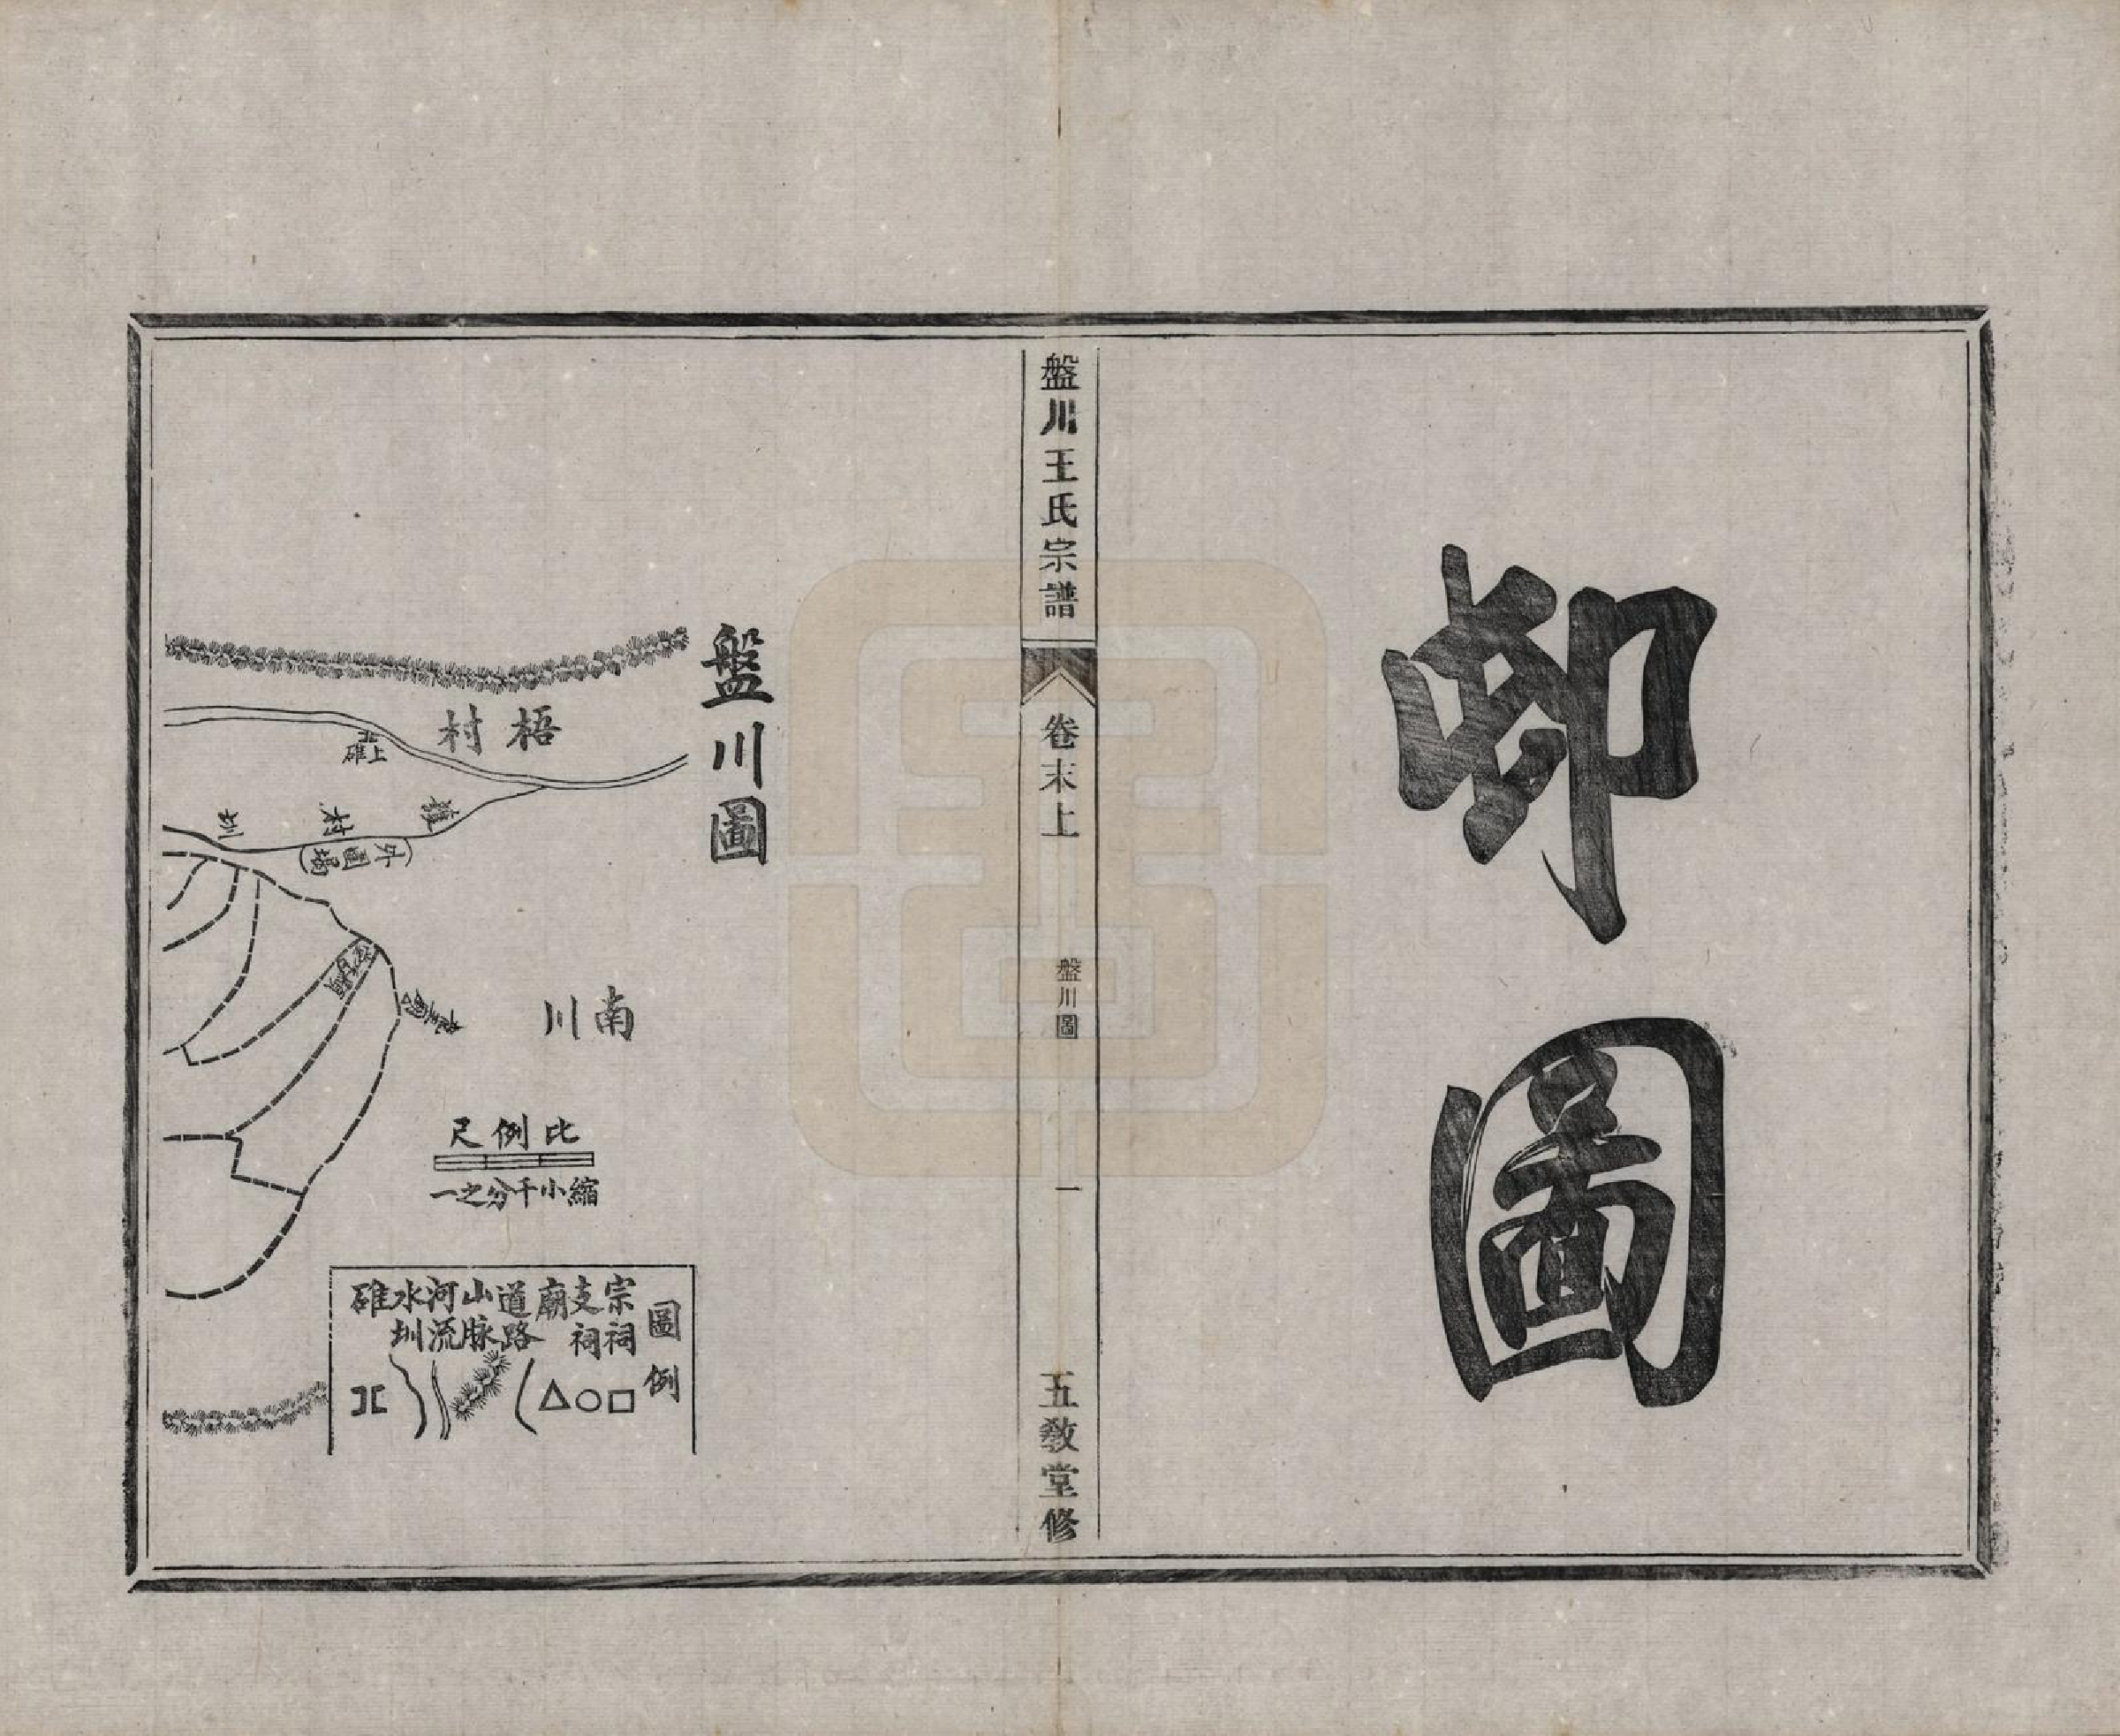 邨圖
盤川王氏宗譜
卷末上
盤川圖
一
五敎堂修
盤川圖
梧村
上碓
村
圳
(外圍場)
南川
比例尺
縮小千分之一
圖例
宗祠
支祠
廟
道路
山脉
河流
水圳
碓